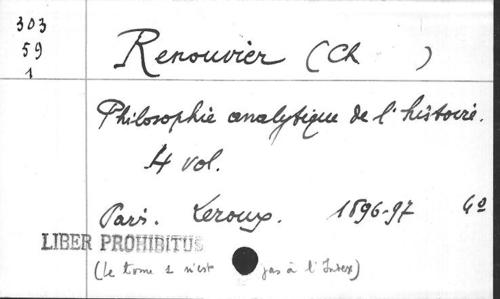 303
59
1
Renouvier (Ch )
Philosophie analytique de l'histoire.
4 vol.
Paris. Leroux. 1896-97 4°
LIBER PROHIBITUS
(le tome 1 n'est pas à l'Index)